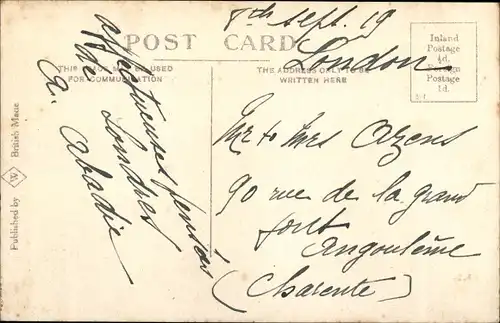 8th sept. 19
London
POST CARD
THIS SPACE MAY BE USED
FOR COMMUNICATION
THE ADDRESS ONLY TO BE
WRITTEN HERE
Inland
Postage
½d.
Foreign
Postage
1d.
affectueuses pensées
de Londres
A. Abadie
Mr & Mrs Azens
90 rue de la grand
font
Angoulême
(Charente)
Published by W British Made